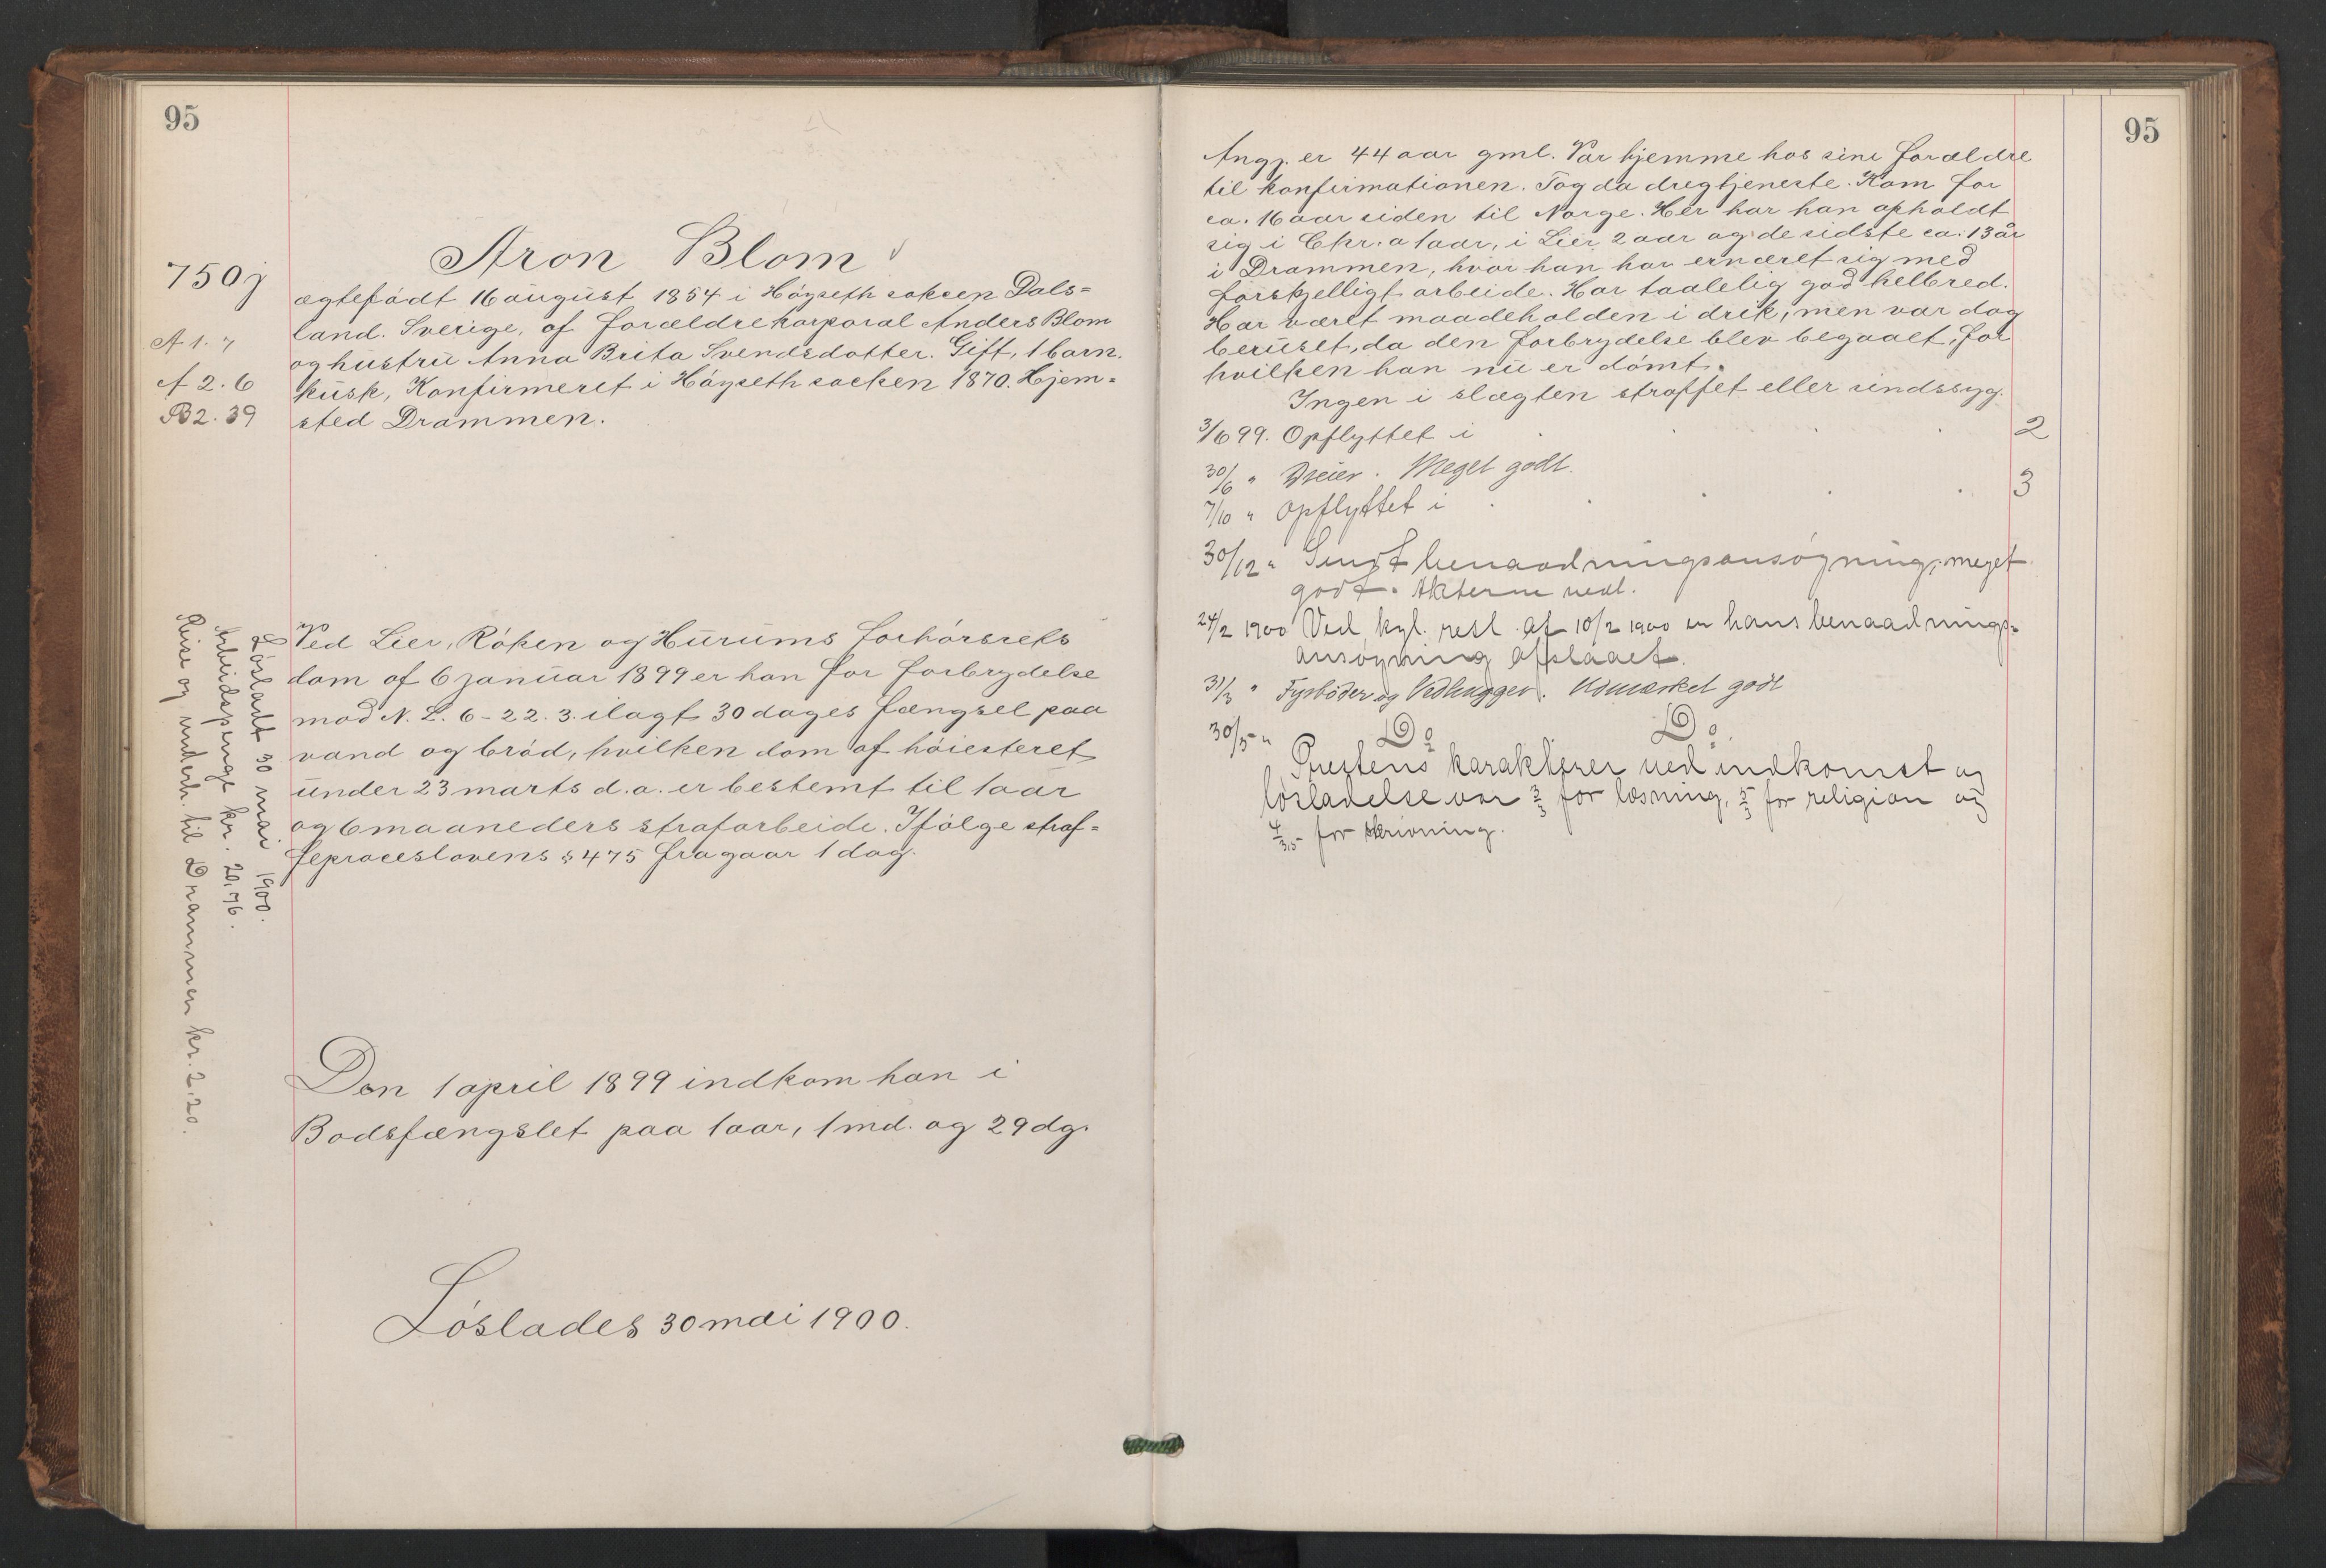 95
Aron Blom
750j
ægtefödt 16 august 1854 i Höyseth soksen Dals=
land. Sverige, af forældre korporal Anders Blom
A 1. 7
og hustru Anna Brita Svendsdotter. Gift, 1 barn.
A 2. 6
kusk, Konfirmeret i Höyseth socken 1870. Hjem=
B2. 39
sted Drammen.
Ved Lier, Röken og Hurums forhörsrets
dom af 6 januar 1899 er han for forbrydelse
mod N. L. 6-22. 3. ilagt 30 dages fængsel paa
vand og bröd, hvilken dom af höiesteret
under 23 marts d. a. er bestemt til 1 aar
og 6 maaneders strafarbeide. Ifölge straf=
feproceslovens § 475 fragaar 1 dag.
Lösladt 30 mai 1900.
Arbeidspenge kr. 20,76.
Reise og underh. til Drammen kr. 2.20.
Den 1 april 1899 indkom han i
Bodsfængslet paa 1 aar, 1 md. og 29 dg.
Löslades 30 mai 1900.
95
Angj. er 44 aar gml. Var hjemme hos sine forældre
til konfirmationen. Tog da dregtjeneste. Kom for
ca. 16 aar siden til Norge. Her har han opholdt
sig i Chr.a 1 aar, i Lier 2 aar og de sidste ca. 13 år
i Drammen, hvor han har ernæret sig med
forskjelligt arbeide. Har taalelig god helbred.
Har været maadeholden i drik, men var dog
beruset, da den forbrydelse blev begaaet, for
hvilken han nu er dömt.
Ingen i slægten straffet eller sindssyg.
3/6 99. Opflyttet i 2
30/6 " Dreier. Meget godt.
7/10 " Opflyttet i 3
30/12 " Sendt benaadningsansögning, meget
godt. Akterne vedl.
24/2 1900 Ved kgl. resl. af 10/2 1900 er hans benaadnings=
ansögning afslaaet.
31/3 " Fyrböder og Vedhugger. Udmærket godt
30/5 " Do Do.
Prestens karakterer ved indkomst og
lösladelse var 3/3 for læsning, 5/3 for religion og
4/3,5 for skrivning.